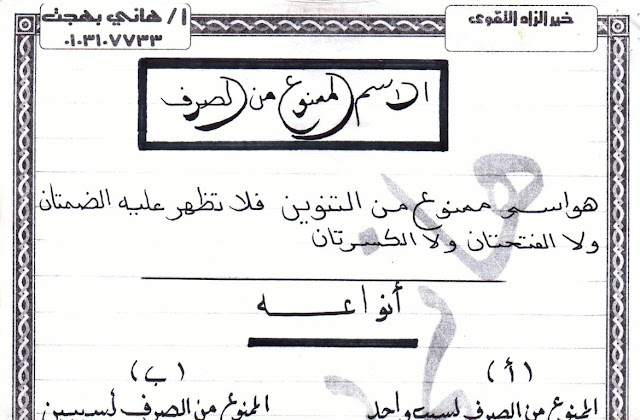 خير الزاد التقوى
أ / هاني بهجت
٠١٠٣١٠٧٧٣٣
الاسم الممنوع من الصرف
هو اسم ممنوع من التنوين فلا تظهر عليه الضمتان
ولا الفتحتان ولا الكسرتان
أنواعه
(أ) (ب)
الممنوع من الصرف لسبب واحد الممنوع من الصرف لسببين